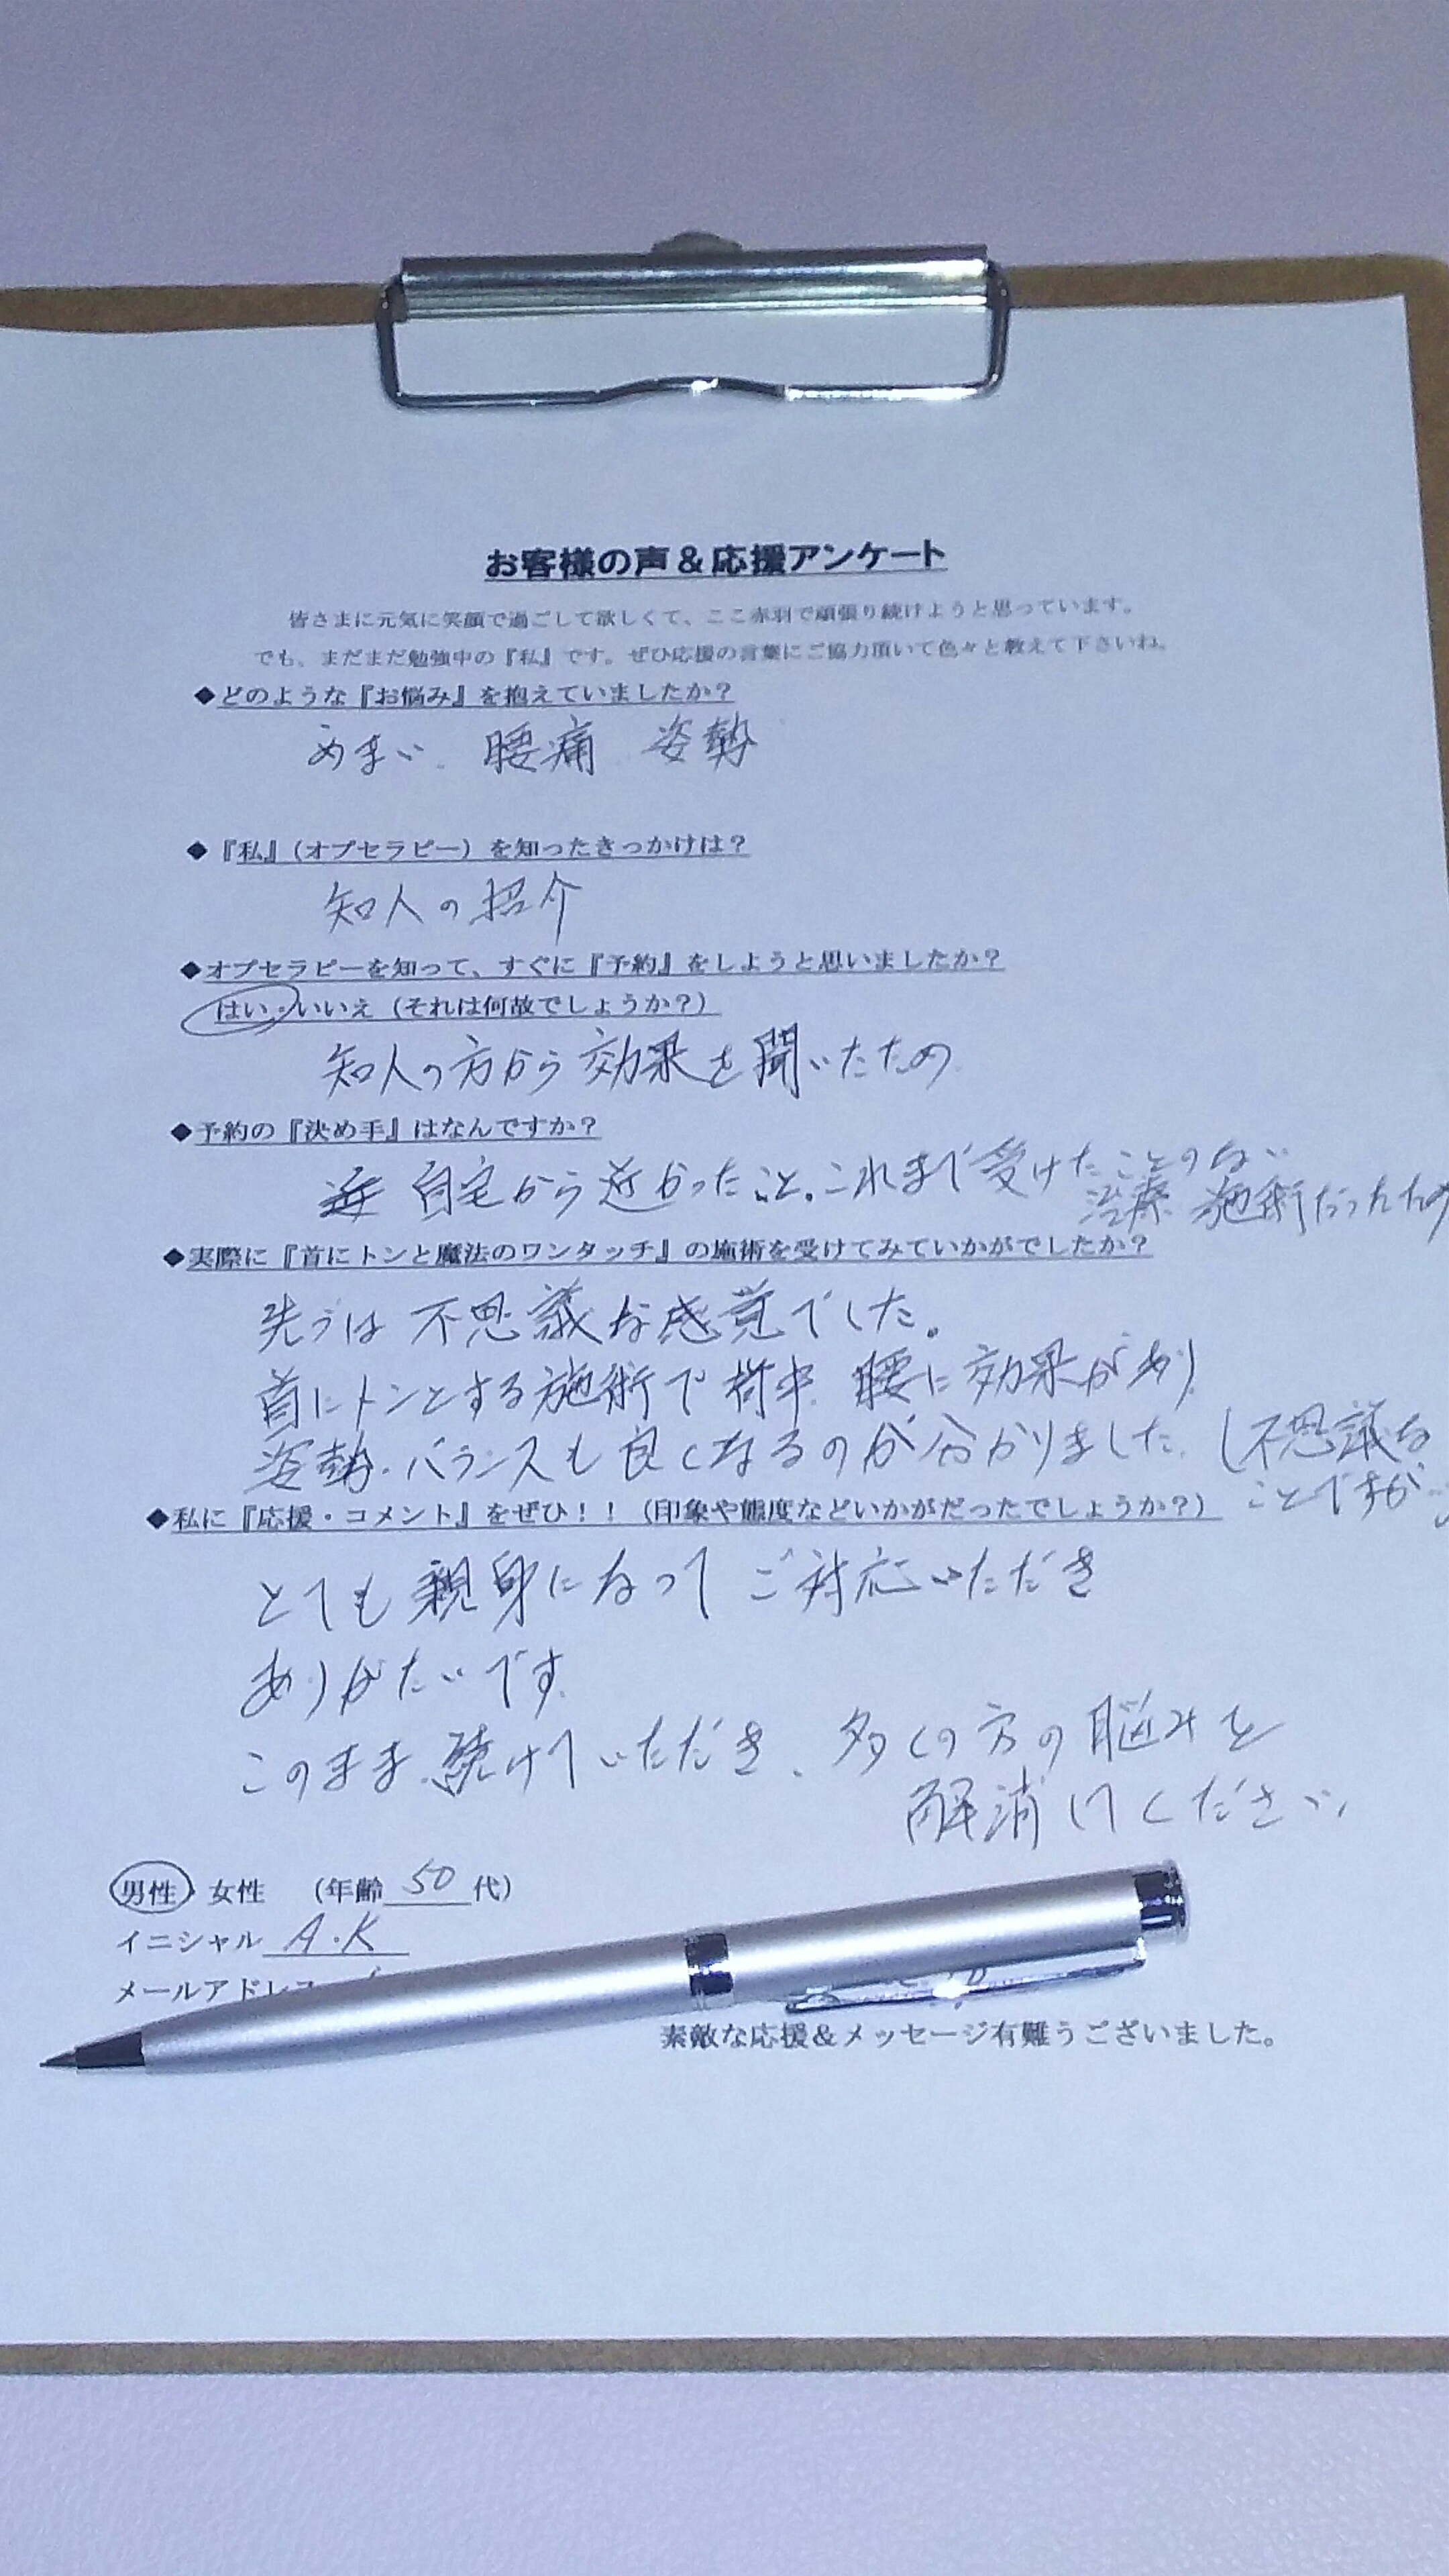 お客様の声＆応援アンケート
皆さまに元気に笑顔で過ごして欲しくて、ここ赤羽で頑張り続けようと思っています。
でも、まだまだ勉強中の『私』です。ぜひ応援の言葉にご協力頂いて色々と教えて下さいね。
◆どのような『お悩み』を抱えていましたか？
めまい、腰痛 姿勢
◆『私』（オプセラピー）を知ったきっかけは？
知人の紹介
◆オプセラピーを知って、すぐに『予約』をしようと思いましたか？
はい・いいえ（それは何故でしょうか？）
知人の方から効果を聞いたため
◆予約の『決め手』はなんですか？
自宅から近かったこと。これまで受けたことのない
治療 施術だったため
◆実際に『首にトンと魔法のワンタッチ』の施術を受けてみていかがでしたか？
先ずは不思議な感覚でした。
首にトンとする施術で背中、腰に効果があり
姿勢・バランスも良くなるのが分かりました。（不思議な
ことですが
◆私に『応援・コメント』をぜひ！！（印象や態度などいかがだったでしょうか？）
とても親身になってご対応いただき
ありがたいです。
このまま、続けていただき、多くの方の脳みを
解消してください。
男性・女性 （年齢 50 代）
イニシャル A・K
メールアドレス
素敵な応援＆メッセージ有難うございました。